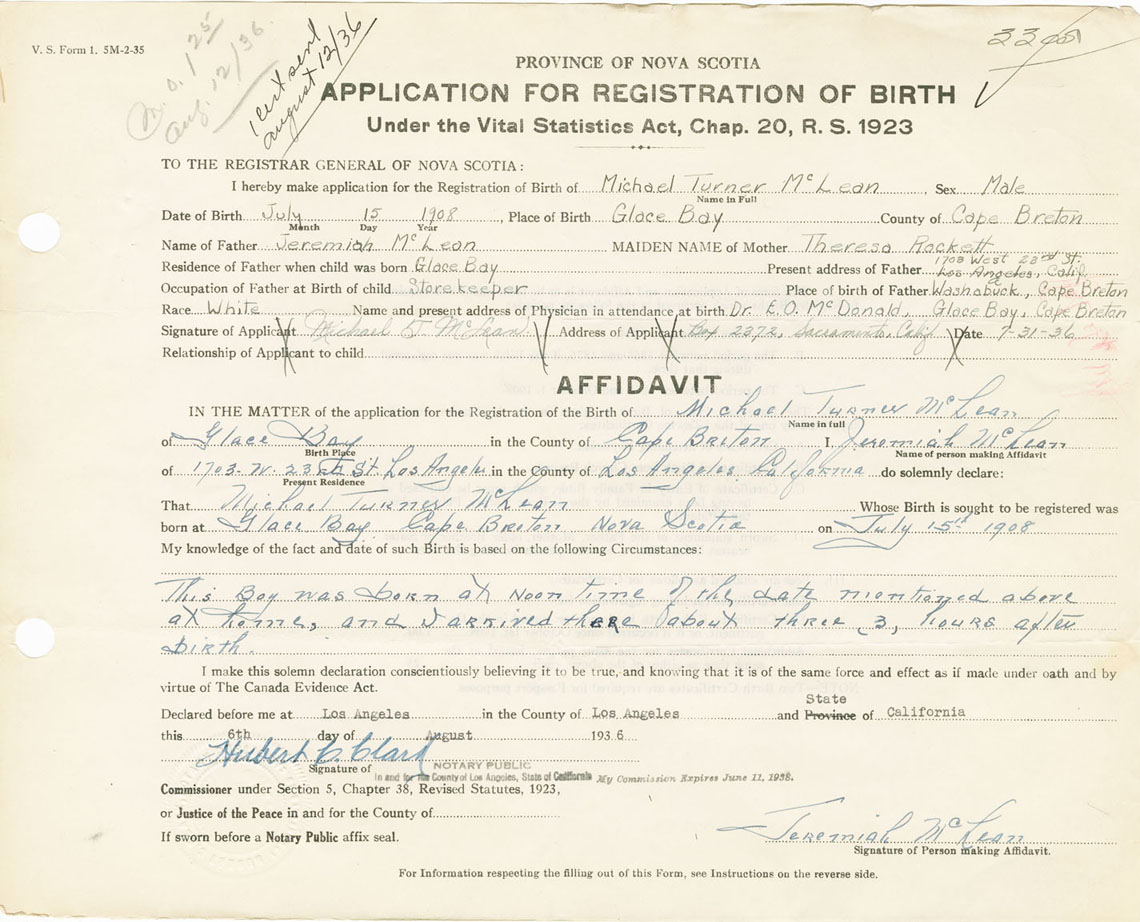 V. S. Form 1. 5M-2-35
M.O. 1 25
Aug. 12/36
1 cert sent
august 12/36
PROVINCE OF NOVA SCOTIA
APPLICATION FOR REGISTRATION OF BIRTH
Under the Vital Statistics Act, Chap. 20, R. S. 1923
TO THE REGISTRAR GENERAL OF NOVA SCOTIA:
I hereby make application for the Registration of Birth of Michael Turner McLean, Sex Male
Name in Full
Date of Birth July 15 1908, Place of Birth Glace Bay County of Cape Breton
Month Day Year
Name of Father Jeremiah McLean MAIDEN NAME of Mother Theresa Rockett
1703 West 23rd St.
Residence of Father when child was born Glace Bay Present address of Father Los Angeles, Calif.
Occupation of Father at Birth of child Storekeeper Place of birth of Father Washabuck, Cape Breton
Race White Name and present address of Physician in attendance at birth Dr. E.O. McDonald, Glace Bay, Cape Breton
Signature of Applicant Michael T McLean Address of Applicant Box 2272, Sacramento, Calif Date 7-31-36
Relationship of Applicant to child
AFFIDAVIT
IN THE MATTER of the application for the Registration of the Birth of Michael Turner McLean
Name in full
of Glace Bay in the County of Cape Breton I Jeremiah McLean
Birth Place Name of person making Affidavit
of 1703. W. 23 St Los Angeles in the County of Los Angeles California do solemnly declare:
Present Residence
That Michael Turner McLean Whose Birth is sought to be registered was
born at Glace Bay Cape Breton Nova Scotia on July 15th 1908
My knowledge of the fact and date of such Birth is based on the following Circumstances:
This Boy was born at noon time of the date mentioned above
at home, and I arrived there about three, 3, hours after
Birth.
I make this solemn declaration conscientiously believing it to be true, and knowing that it is of the same force and effect as if made under oath and by
virtue of The Canada Evidence Act.
State
Declared before me at Los Angeles in the County of Los Angeles and Province of California
this 6th day of August 1936.
Hubert C. Clark
Signature of NOTARY PUBLIC
In and for the County of Los Angeles, State of California My Commission Expires June 11, 1938.
Commissioner under Section 5, Chapter 38, Revised Statutes, 1923,
or Justice of the Peace in and for the County of
If sworn before a Notary Public affix seal.
Jeremiah McLean
Signature of Person making Affidavit.
For Information respecting the filling out of this Form, see Instructions on the reverse side.